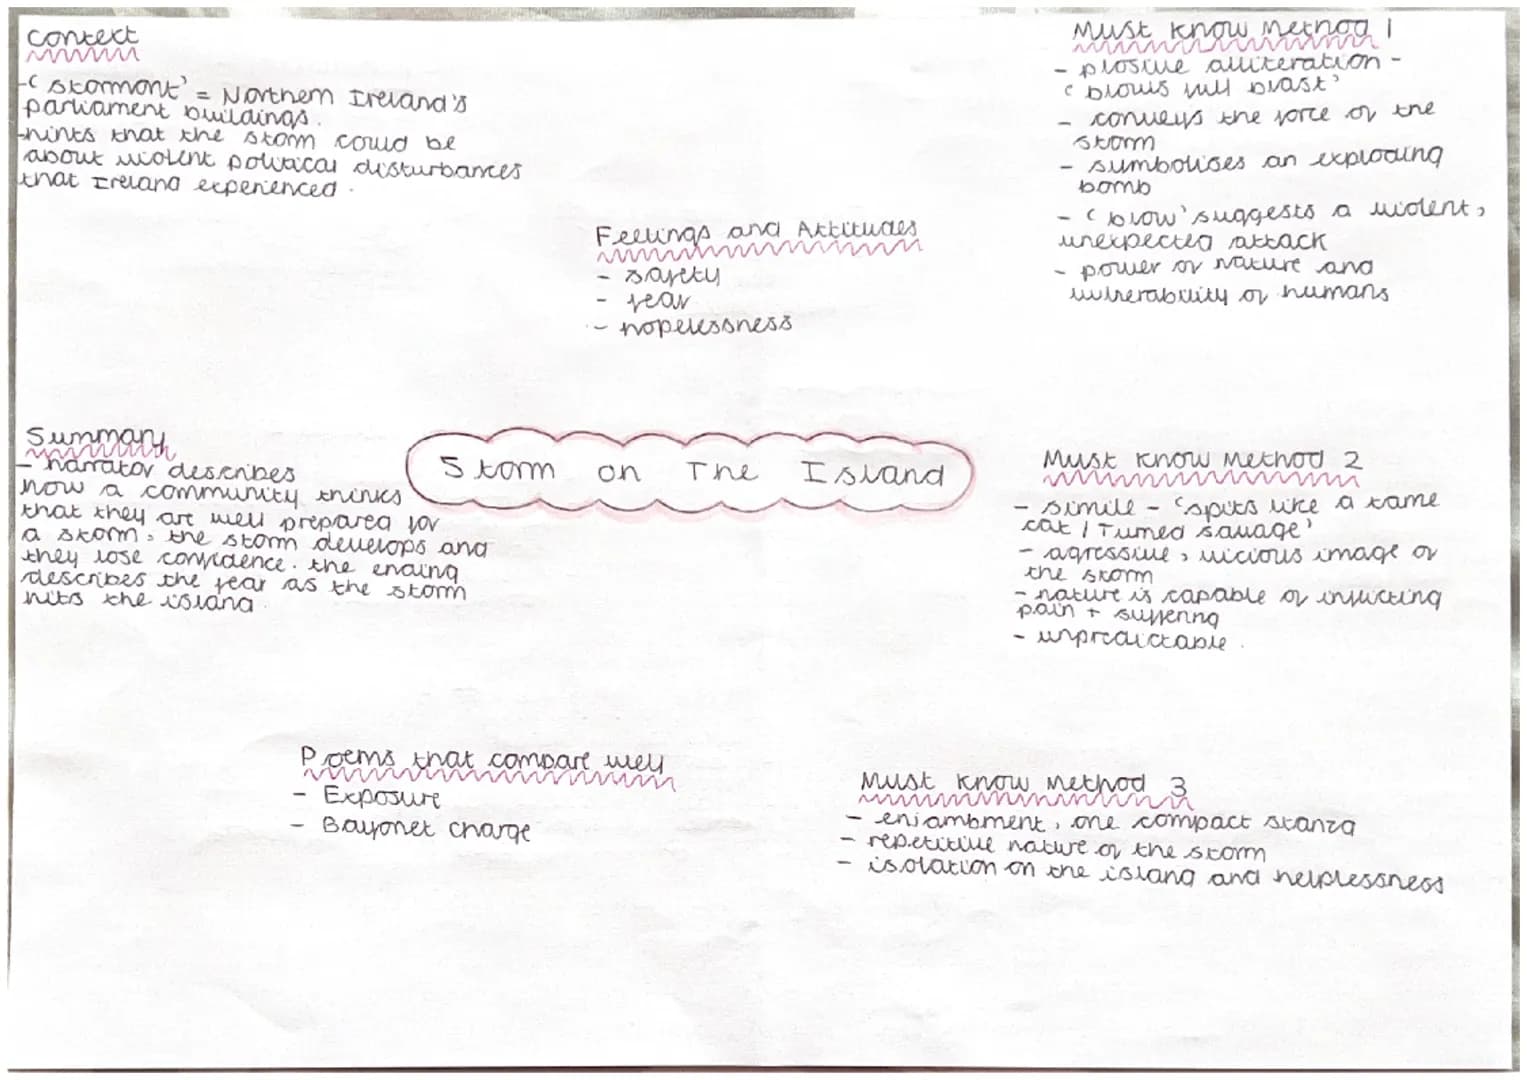 Context
- 'stormont' = Northern Ireland's
parliament buildings.
- hints that the storm could be
about violent political disturbances
that Ireland experienced.
Feelings and Attitudes
- safety
- fear
- hopelessness
Must know method 1
- plosive alliteration -
'blows full blast'
- conveys the force of the
storm
- sumbolises an exploding
bomb
- 'blow' suggests a violent,
unexpected attack
- power of nature and
vulnerability of humans
Summary
- narrator describes
how a community thinks
that they are well prepared for
a storm, the storm develops and
they lose confidence. the ending
describes the fear as the storm
hits the island
Storm on The Island
Must know Method 2
- simile - 'spits like a tame
cat / Turned savage'
- agressive, vicious image of
the storm
- nature is capable of inflicting
pain + suffering
- unpredictable.
Poems that compare well
- Exposure
- Bayonet charge
Must know method 3
- enjambment, one compact stanza
- repetitive nature of the storm
- isolation on the island and helplessness